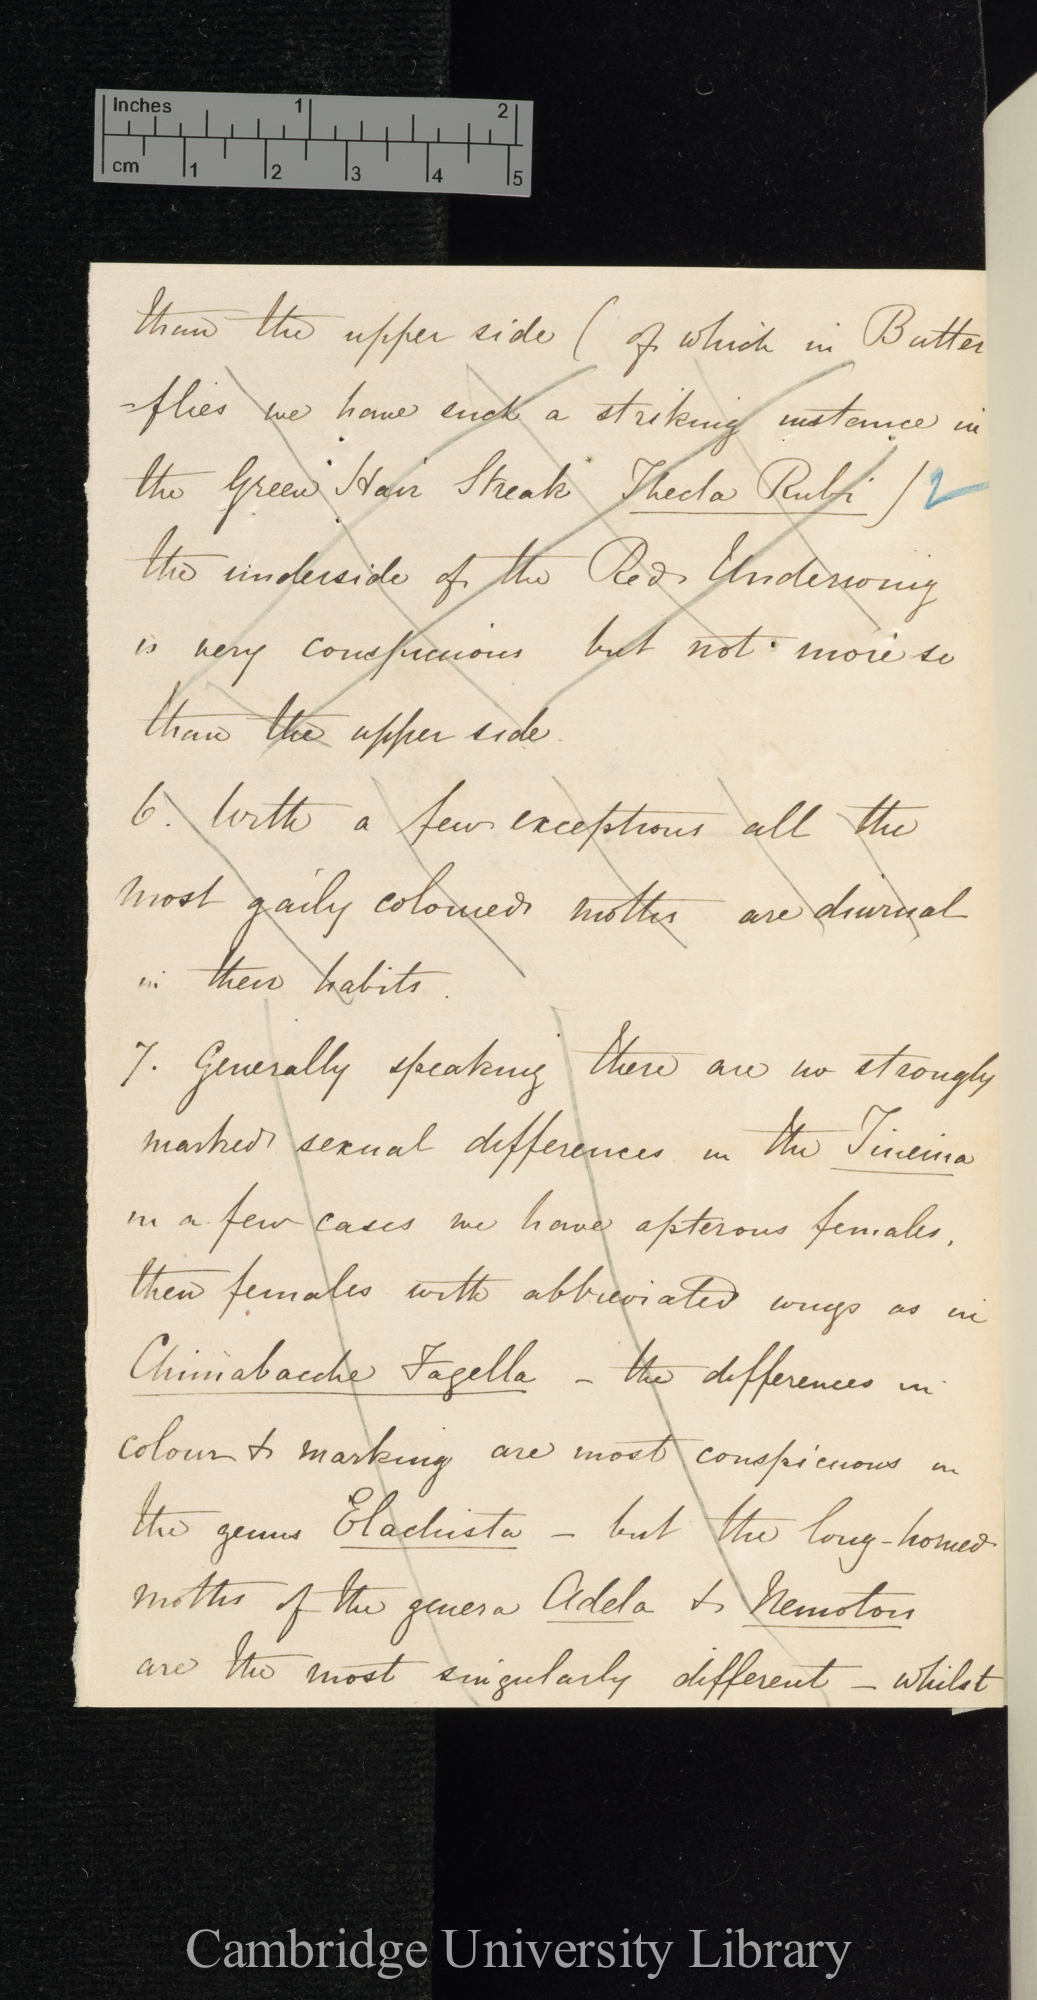 Inches 1 2
cm 1 2 3 4 5
than the upper side ( of which in Butter
=flies we have such a striking instance in
the Green Hair Streak Thecla Rubi ) 2
the underside of the Red Underwing
is very conspicuous but not more so
than the upper side.
6. With a few exceptions all the
most gaily coloured moths are diurnal
in their habits.
7. Generally speaking there are no strongly
marked sexual differences in the Tineina
in a few cases we have apterous females,
then females with abbreviated wings as in
Chimabacche Fagella – the differences in
colour & marking are most conspicuous in
the genus Elachista – but the long-horned
moths of the genera Adela & Nemotois
are the most singularly different – whilst
Cambridge University Library